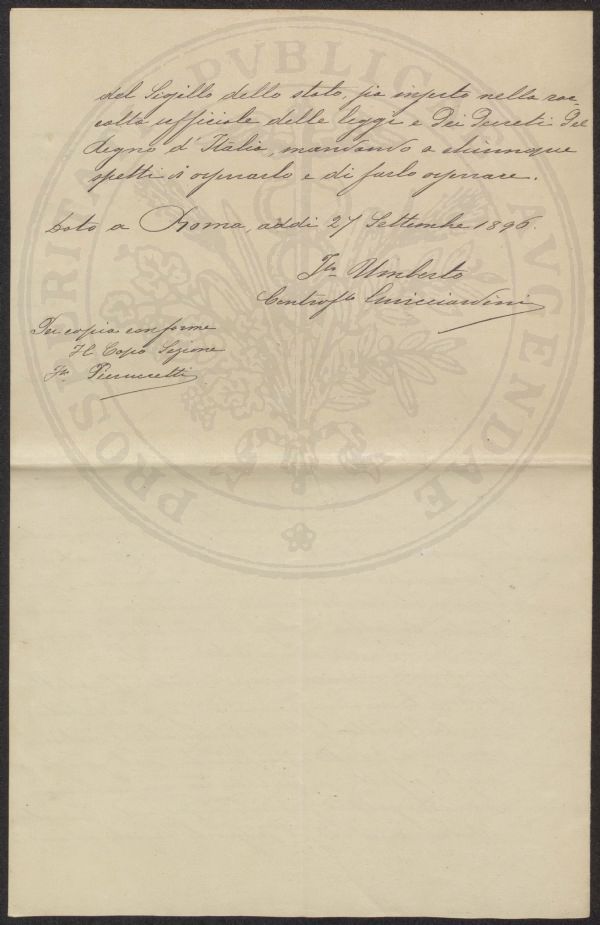 del Sigillo dello stato, sia inserto nella rac-
colta ufficiale delle leggi e dei decreti del
Regno d'Italia, mandando a chiunque
spetti di osservarlo e di farlo osservare.
Dato a Roma, addì 27 Settembre 1896.
Fto Umberto
Controfto Guicciardini
Per copia conforme
Il Capo Sezione
Fto
PROSPERITATI PVBLICAE AVGENDAE